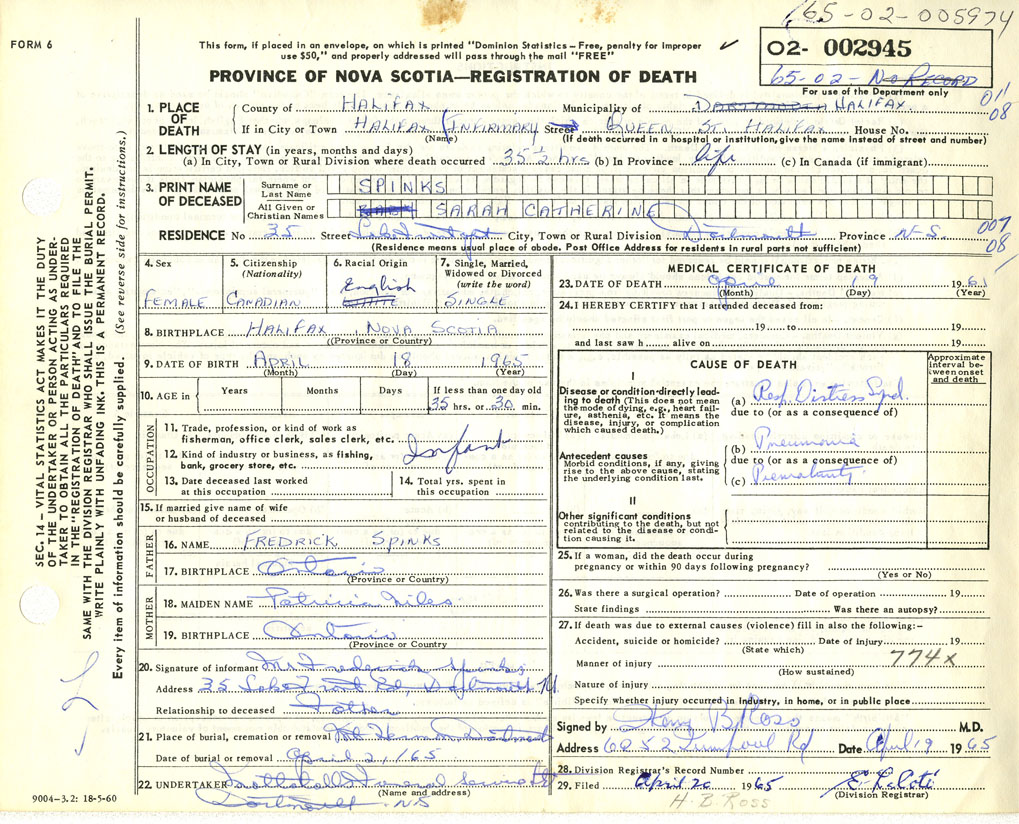 65-02-005974
FORM 6
This form, if placed in an envelope, on which is printed "Dominion Statistics – Free, penalty for improper
use $50," and properly addressed will pass through the mail "FREE"
✓
O2- 002945
65-02-No Record
For use of the Department only
PROVINCE OF NOVA SCOTIA—REGISTRATION OF DEATH
011
08
1. PLACE OF DEATH
County of HALIFAX Municipality of DARTMOUTH HALIFAX
If in City or Town HALIFAX INFIRMARY Street QUEEN ST. HALIFAX House No.
(Name) (If death occurred in a hospital or institution, give the name instead of street and number)
2. LENGTH OF STAY (in years, months and days)
(a) In City, Town or Rural Division where death occurred 35 1/2 hrs (b) In Province life (c) In Canada (if immigrant)
3. PRINT NAME OF DECEASED
Surname or Last Name SPINKS
All Given or Christian Names BABY SARAH CATHERINE
RESIDENCE No 35 Street City, Town or Rural Division Dartmouth Province N.S.
007
08
(Residence means usual place of abode. Post Office Address for residents in rural parts not sufficient)
4. Sex
FEMALE
5. Citizenship
(Nationality)
CANADIAN
6. Racial Origin
English
7. Single, Married, Widowed or Divorced
(write the word)
SINGLE
8. BIRTHPLACE HALIFAX, NOVA SCOTIA
((Province or Country)
9. DATE OF BIRTH APRIL 18 1965
(Month) (Day) (Year)
10. AGE in
Years Months Days If less than one day old
35 hrs. or 30 min.
OCCUPATION
11. Trade, profession, or kind of work as
fisherman, office clerk, sales clerk, etc.
Infant
12. Kind of industry or business, as fishing,
bank, grocery store, etc.
13. Date deceased last worked
at this occupation
14. Total yrs. spent in
this occupation
15. If married give name of wife
or husband of deceased
FATHER
16. NAME FREDRICK SPINKS
17. BIRTHPLACE Ontario
(Province or Country)
MOTHER
18. MAIDEN NAME Patricia Niles
19. BIRTHPLACE Ontario
(Province or Country
20. Signature of informant Mr Frederick Spinks
Address 35 St, Dartmouth
Relationship to deceased Father
21. Place of burial, cremation or removal Mt Hermon Dartmouth
Date of burial or removal April 21/65
22. UNDERTAKER Funeral Service
(Name and address)
Dartmouth NS
9004–3.2: 18-5-60
MEDICAL CERTIFICATE OF DEATH
23. DATE OF DEATH April 19 1961
(Month) (Day) (Year)
24. I HEREBY CERTIFY that I attended deceased from:
19 to 19
and last saw h alive on 19
CAUSE OF DEATH
Approximate interval between onset and death
I
Disease or condition directly leading to death (This does not mean the mode of dying, e.g., heart failure, asthenia, etc. It means the disease, injury, or complication which caused death.)
(a) Resp Distress Synd.
due to (or as a consequence of)
Antecedent causes
Morbid conditions, if any, giving rise to the above cause, stating the underlying condition last.
(b) Pneumonia
due to (or as a consequence of)
(c) Prematurity
II
Other significant conditions
contributing to the death, but not related to the disease or condition causing it.
25. If a woman, did the death occur during
pregnancy or within 90 days following pregnancy?
(Yes or No)
26. Was there a surgical operation? Date of operation 19
State findings Was there an autopsy?
27. If death was due to external causes (violence) fill in also the following:–
Accident, suicide or homicide? Date of injury 19
(State which)
774x
Manner of injury
(How sustained)
Nature of injury
Specify whether injury occurred in Industry, in home, or in public place
Signed by Henry B Ross M.D.
Address 6252 Liverpool Rd Date April 19 1965
28. Division Registrar's Record Number
29. Filed April 20 1965
(Division Registrar)
H. B. ROSS
SEC. 14 – VITAL STATISTICS ACT MAKES IT THE DUTY
OF THE UNDERTAKER OR PERSON ACTING AS UNDER-
TAKER TO OBTAIN ALL THE PARTICULARS REQUIRED
IN THE "REGISTRATION OF DEATH" AND TO FILE THE
SAME WITH THE DIVISION REGISTRAR WHO SHALL ISSUE THE BURIAL PERMIT.
WRITE PLAINLY WITH UNFADING INK. THIS IS A PERMANENT RECORD.
Every item of information should be carefully supplied. (See reverse side for instructions,)